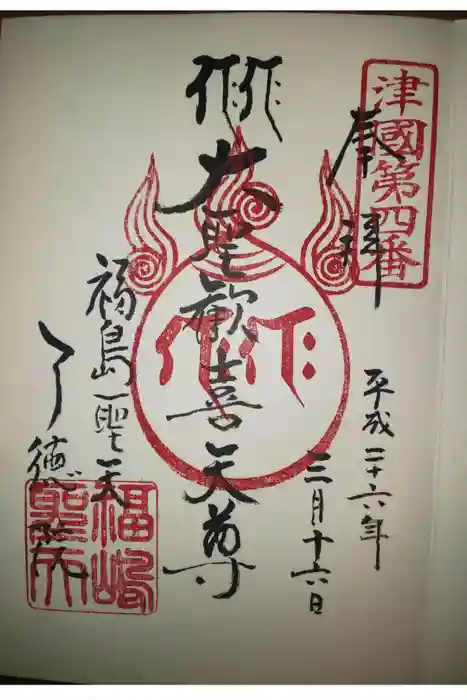 津國第四番
奉拝
平成二十六年
三月十六日
大聖歓喜天尊
福島聖天
了徳院
福嶋
聖天